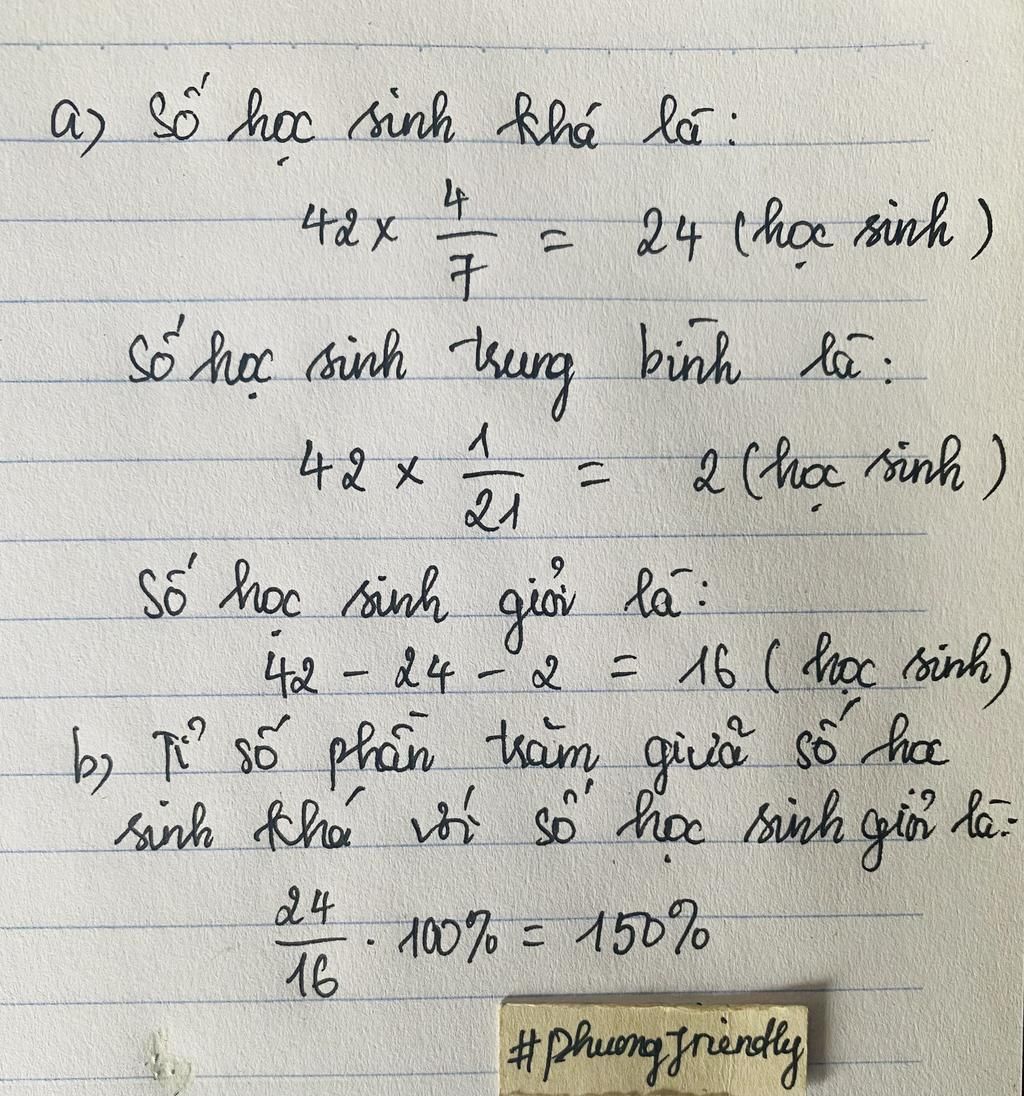 a) Số học sinh khá là:
42 x 4/7 = 24 (học sinh)
Số học sinh trung bình là:
42 x 1/21 = 2 (học sinh)
Số học sinh giỏi là:
42 - 24 - 2 = 16 (học sinh)
b) Tỉ số phần trăm giữa số học
sinh khá với số học sinh giỏi là:
24/16 . 100% = 150%
#phuongfriendly